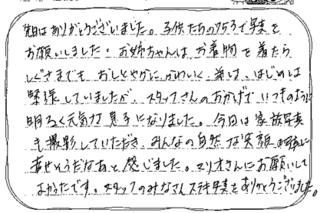 先日はありがとうございました。子供たちの753で写真を
お願いしました。お姉ちゃんは、お着物を着たら
しぐさまでも、おしとやかに、かわいく、弟は、はじめは
緊張していましたが、スタッフさんのおかげで、いつものように
明るく元気な男子になりました。今回は家族写真
も撮影していただき、みんなの自然な笑顔
幸せそうだなぁと感じました。マリオさんにお願いして
よかったです。スタッフのみなさんステキな写真をありがとうございました。